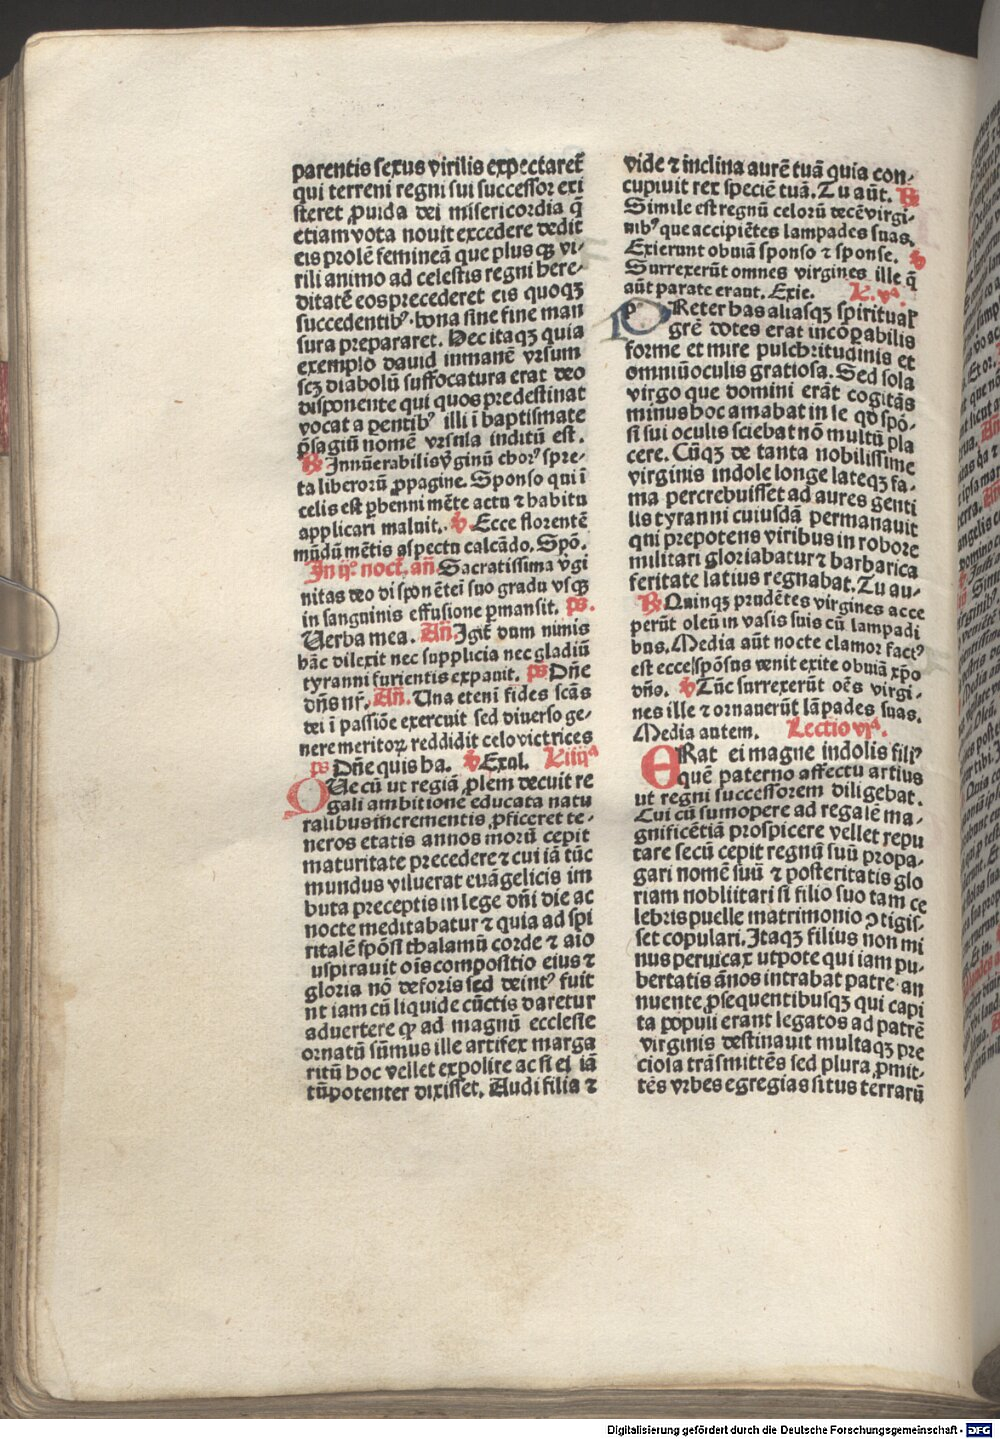 parentis sexus virilis expectaret᷑
qui terreni regni sui successor exi
steret ꝓuida dei misericordia q̄
etiam vota nouit excedere dedit
eis prolē femineā que plus qꝫ vi⸗
rili animo ad celestis regni here⸗
ditatē eos precederet eis quoqꝫ
succedentibꝰ bona sine fine man
sura prepararet. Hec itaqꝫ quia
exemplo dauid inmanē vrsum
scꝫ diabolū suffocatura erat deo
disponente qui quos predestinat
vocat a ꝑentibꝰ illi ī baptismate
p̄sagiū nomē vrsula inditū est.
℟ Innūerabilis v̄ginū chorꝰ spre⸗
ta liberorū ꝓpagine. Sponso qui ī
celis est ꝑhenni mēte actu ⁊ habitu
applicari maluit. ℣ Ecce florentē
mūdū mētis aspectu calcādo. Spō.
In ijº noct̄. an̄ Sacratissima v̄gi
nitas deo disponētei suo gradu vsqꝫ
in sanguinis effusione ꝑmansit. ps.
Uerba mea. An̄ Igit᷑ dum nimis
hāc dilexit nec supplicia nec gladiū
tyranni furientis expauit. ps Dn̄e
dn̄s nr̄. An̄. Una etenī fides scās
dei ī passiōe exercuit sed diuerso ge⸗
nere meritoꝝ reddidit celo victrices
ps Dn̄e quis ha. ℣ Exal. L iiijª
QUe cū ut regiā ꝓlem decuit re
gali ambitione educata natu
ralibus incrementis ꝓficeret te⸗
neros etatis annos morū cepit
maturitate precedere ⁊ cui iā tūc
mundus viluerat euāgelicis im
buta preceptis in lege dn̄i die ac
nocte meditabatur ⁊ quia ad spi
ritalē spōsi thalamū corde ⁊ aīo
uspirauit oīs compositio eius ⁊
gloria nō deforis sed deintꝰ fuit
nt iam cū liquide cūctis daretur
aduertere ꝙ ad magnū ecclesie
ornatū sūmus ille artifex marga
ritū hoc vellet expolire ac si ei iā
tū potenter dixisset. Audi filia ⁊
vide ⁊ inclina aurē tuā quia con⸗
cupiuit rex speciē tuā. Tu aūt. ℟
Simile est regnū celorū decē virgi⸗
nibꝰ que accipiētes lampades suas.
Exierunt obuiā sponso ⁊ sponse. ℣
Surrexerūt omnes virgines ille q̄
aūt parate erant. Exie. L. vª.
PReter has aliasqꝫ spiritual᷑
grē dotes erat incōꝑabilis
forme et mire pulchritudinis et
omniū oculis gratiosa. Sed sola
virgo que domini erāt cogitās
minus hoc amabat in se qd̄ spō⸗
si sui oculis sciebat nō multū pla
cere. Cūqꝫ de tanta nobilissime
virginis indole longe lateqꝫ fa⸗
ma percrebuisset ad aures genti
lis tyranni cuiusdā permanauit
qui prepotens viribus in robore
militari gloriabatur ⁊ barbarica
feritate latius regnabat. Tu au⸗
℟ Quinqꝫ prudētes virgines acce
perūt oleū in vasis suis cū lampadi
bus. Media aūt nocte clamor factꝰ
est ecce spōsus venit exite obuiā xp̄o
dn̄o. ℣ Tūc surrexerūt oēs virgi⸗
nes ille ⁊ ornauerūt lāpades suas.
Media autem. Lectio vjª.
ERat ei magne indolis filiꝰ
quē paterno affectu artius
ut regni successorem diligebat.
Cui cū sumopere ad regalē ma⸗
gnificētiā prospicere vellet repu
tare secū cepit regnū suū propa⸗
gari nomē suū ⁊ posteritatis glo
riam nobliitari si filio suo tam ce
lebris puelle matrimonio ꝯtigis⸗
set copulari. Itaqꝫ filius non mi
nus peruicax utpote qui iam pu⸗
bertatis ānos intrabat patre an
nuente ꝓsequentibusqꝫ qui capi
ta populi erant legatos ad patrē
virginis destinauit multaqꝫ pre
ciosa trāsmittēs sed plura ꝓmit⸗
tēs vrbes egregias situs terrarū
Digitalisierung gefördert durch die Deutsche Forschungsgemeinschaft - DFG